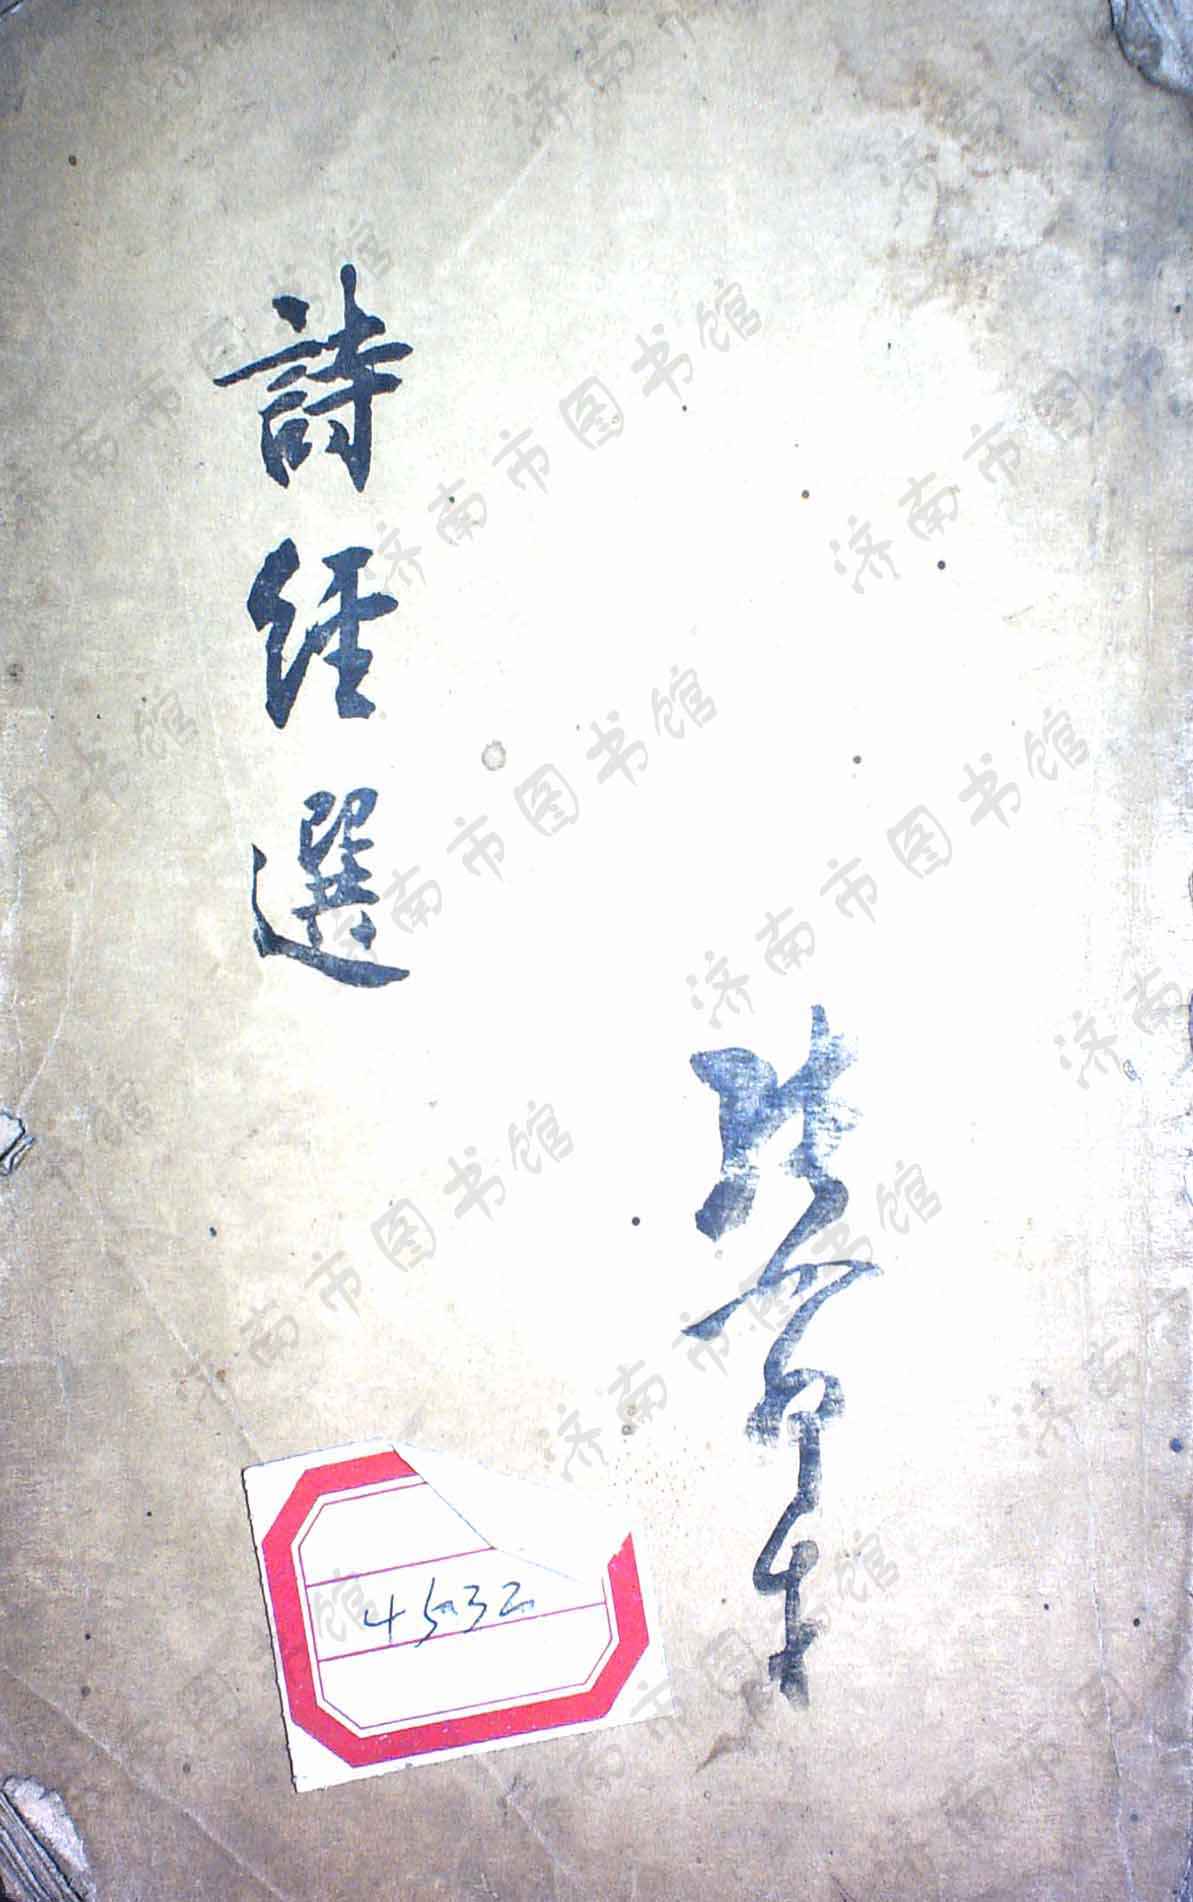 詩經選
4532
济南市图书馆